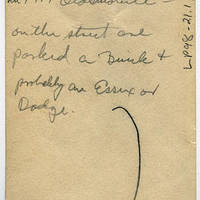 on the street and
parked a Buick &
probably an Essex or
Dodge.
LP98-21.1